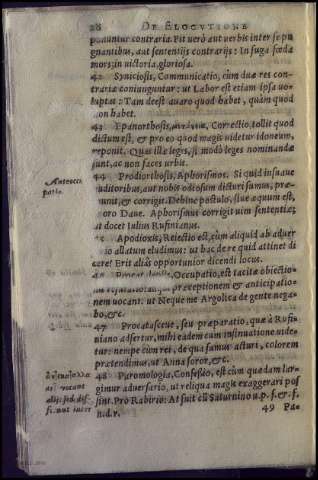 28 DE ELOCVTIONE
ponuntur contraria: Fit verò aut verbis inter se pu
gnantibus, aut sententijs contrarijs: In fuga fœda
mors, in victoria, gloriosa.
42 Syniciosis, Communicatio, cùm duæ res con-
trariæ coniunguntur: ut Labor est etiam ipsa uo-
luptas: Tam deest auaro quod habet, quàm quod
non habet.
43 Epanorthosis, Correctio, tollit quod
dictum est, & pro eo quod magis videtur idoneum,
reponit. Quas ille leges, si modò leges nominandæ
sunt, ac non faces urbis.
44 Prodiorthosis, Aphorismos. Si quid insuaue
auditoribus, aut nobis odiosum dicturi sumus, præ-
& corrigit. Debinc postulo, siue æquum est,
oro Daue. Aphorismus corrigit uim sententiæ,
ut docet Julius Rufinianus.
Antecu
patio.
45 Apodioxis, Reiectio est, cùm aliquid ab aduer
sario allatum eludimus: ut bac de re quid attinet di
cere? Erit aliàs opportunior dicendi locus.
46 Occupatio, est tacitæ obiectio-
nis præceptionem & anticipatio-
nem uocant: ut Neque me Argolica de gente nega-
bo, &c.
47 Procatasceue, seu præparatio, quæ à Rufi-
niano adfertur, mihi eadem cum insinuatione uide-
tur: nempe cùm rei, de qua sumus acturi, colorem
prætendimus, ut Anna soror, &c.
48 Paromologia, Confessio, est cùm quædam lar-
gimur aduersario, ut reliqua magis exaggerari pos
sint. Pro Rabirio: At fuit cū Saturnino u. p. f. & f.
n. d. r.
vocant
alij: sed dif-
49 Pa-